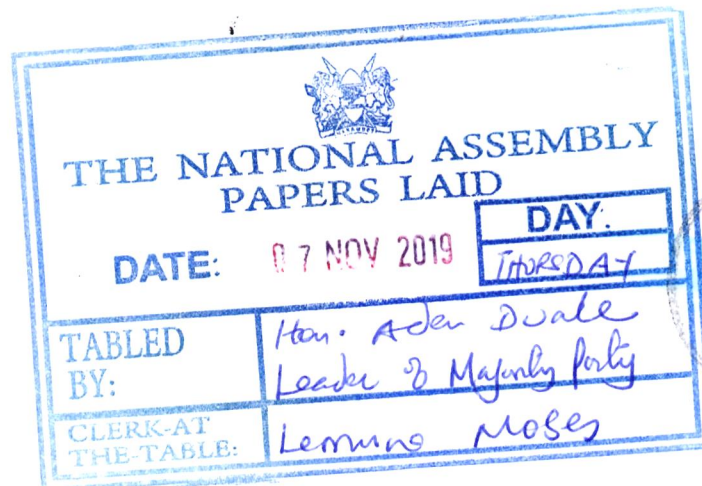 THE NATIONAL ASSEMBLY
PAPERS LAID
DATE: 07 NOV 2019
DAY.
THURSDAY
TABLED
BY:
Hon. Aden Duale
Leader of Majority Party
CLERK-AT
THE-TABLE:
Lemuna Moses